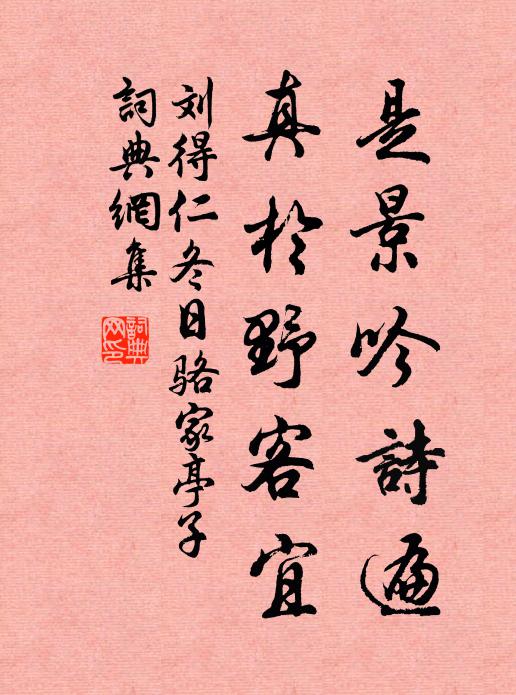 是景吟詩遍
真於野客宜
刘得仁冬日骆家亭子
詞典網集
詞典网印